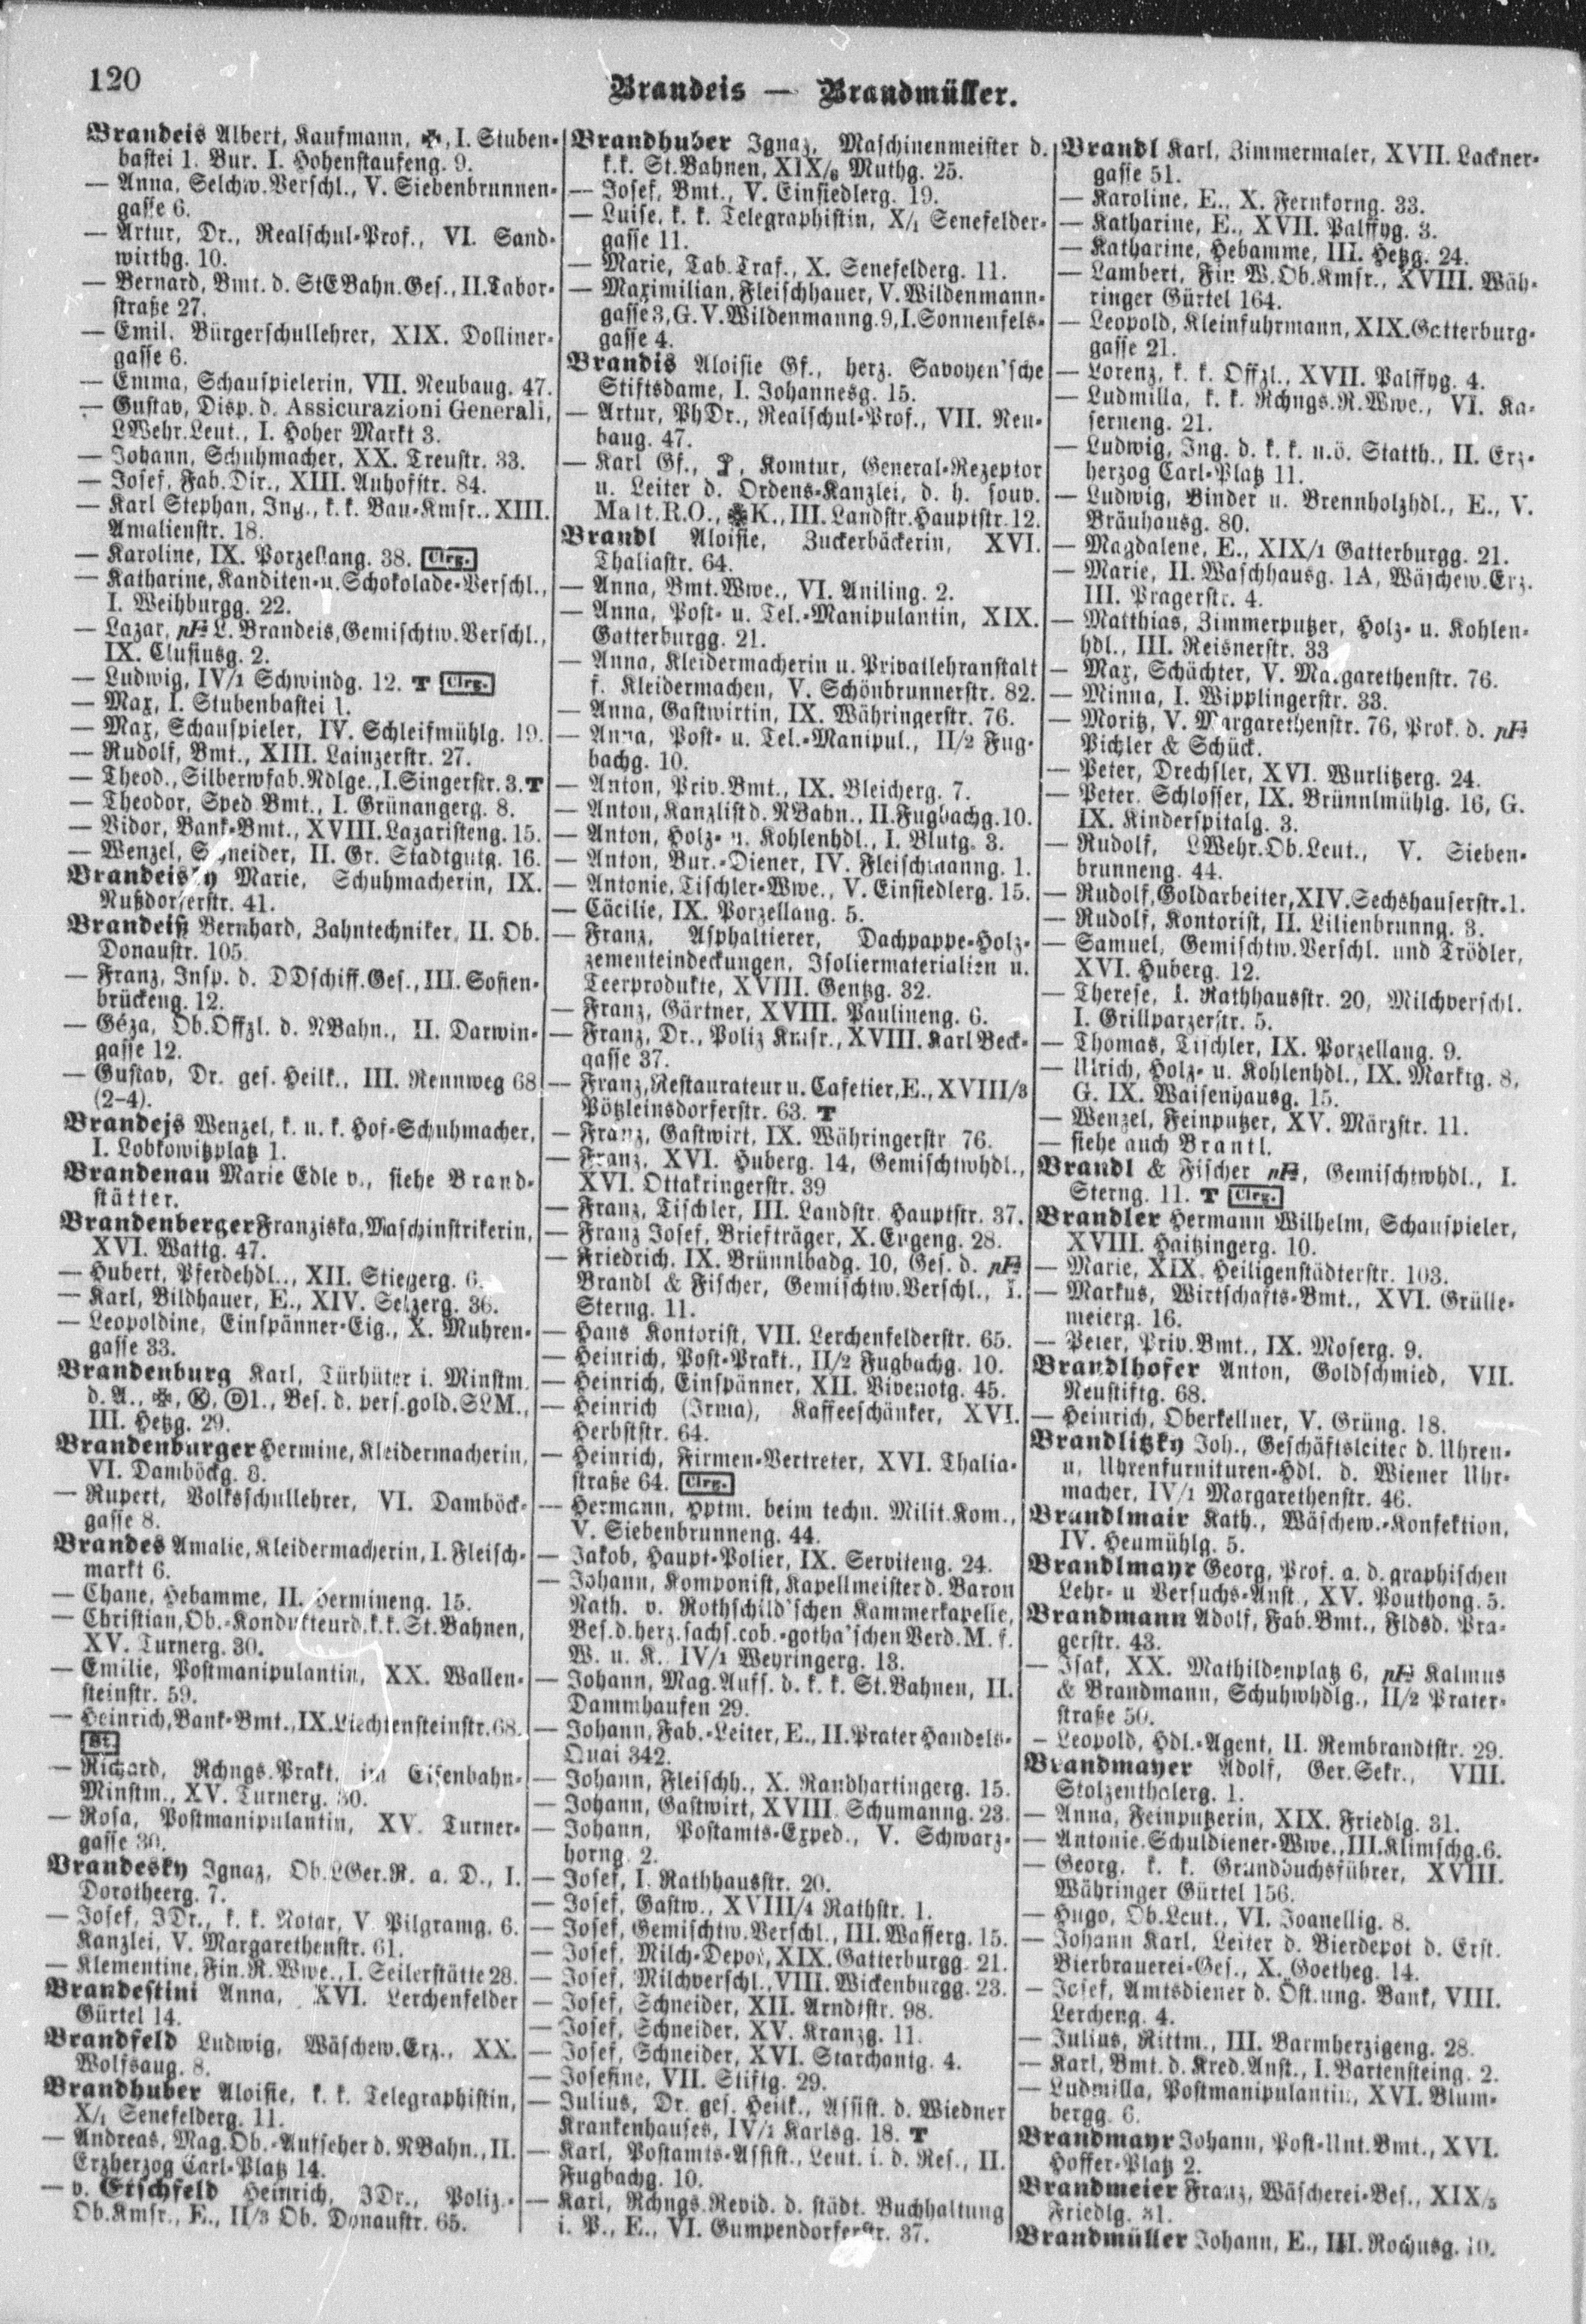 120
Brandeis — Brandmüller.
Brandeis Albert, Kaufmann, ✠, I. Stuben-
bastei 1. Bur. I. Hohenstaufeng. 9.
— Anna, Selchw.Verschl., V. Siebenbrunnen-
gasse 6.
— Artur, Dr., Realschul-Prof., VI. Sand-
wirthg. 10.
— Bernard, Bmt. d. StEBahn.Ges., II.Tabor-
straße 27.
— Emil, Bürgerschullehrer, XIX. Dolliner-
gasse 6.
— Emma, Schauspielerin, VII. Neubaug. 47.
— Gustav, Disp. d. Assicurazioni Generali,
LWehr.Leut., I. Hoher Markt 3.
— Johann, Schuhmacher, XX. Treustr. 33.
— Josef, Fab.Dir., XIII. Auhofstr. 84.
— Karl Stephan, Ing., k. k. Bau-Kmsr., XIII.
Amalienstr. 18.
— Karoline, IX. Porzellang. 38. Clrg.
— Katharine, Kanditen-u. Schokolade-Verschl.,
I. Weihburgg. 22.
— Lazar, pF: L. Brandeis, Gemischtw. Verschl.,
IX. Clusiusg. 2.
— Ludwig, IV/1 Schwindg. 12. T Clrg.
— Max, I. Stubenbastei 1.
— Max, Schauspieler, IV. Schleifmühlg. 19.
— Rudolf, Bmt., XIII. Lainzerstr. 27.
— Theod., Silberwfab.Ndlge., I.Singerstr. 3. T
— Theodor, Sped Bmt., I. Grünangerg. 8.
— Vidor, Bank-Bmt., XVIII. Lazaristeng. 15.
— Wenzel, Schneider, II. Gr. Stadtgutg. 16.
Brandeisky Marie, Schuhmacherin, IX.
Nußdorferstr. 41.
Brandeiß Bernhard, Zahntechniker, II. Ob.
Donaustr. 105.
— Franz, Insp. d. DDschiff.Ges., III. Sofien-
brückeng. 12.
— Géza, Ob.Offzl. d. NBahn., II. Darwin-
gasse 12.
— Gustav, Dr. ges. Heilk., III. Rennweg 68
(2-4).
Brandejs Wenzel, k. u. k. Hof-Schuhmacher,
I. Lobkowitzplatz 1.
Brandenau Marie Edle v., siehe Brand-
stätter.
Brandenberger Franziska, Maschinstrikerin,
XVI. Wattg. 47.
— Hubert, Pferdehdl., XII. Stiegerg. 6.
— Karl, Bildhauer, E., XIV. Selzerg. 36.
— Leopoldine, Einspänner-Eig., X. Muhren-
gasse 33.
Brandenburg Karl, Türhüter i. Minstm.
d. A., ✠, Ⓚ, Ⓓ1., Bes. d. pers.gold.SLM.,
III. Hetzg. 29.
Brandenburger Hermine, Kleidermacherin,
VI. Damböckg. 8.
— Rupert, Volksschullehrer, VI. Damböck-
gasse 8.
Brandes Amalie, Kleidermacherin, I. Fleisch-
markt 6.
— Chane, Hebamme, II. Hermineng. 15.
— Christian, Ob.-Kondukteur d. k. k. St. Bahnen,
XV. Turnerg. 30.
— Emilie, Postmanipulantin, XX. Wallen-
steinstr. 59.
— Heinrich, Bank-Bmt., IX. Liechtensteinstr. 68.
St.
— Richard, Rchngs.Prakt. im Eisenbahn-
Minstm., XV. Turnerg. 30.
— Rosa, Postmanipulantin, XV. Turner-
gasse 30.
Brandesky Ignaz, Ob.LGer.R. a. D., I.
Dorotheerg. 7.
— Josef, JDr., k. k. Notar, V. Pilgramg. 6.
Kanzlei, V. Margarethenstr. 61.
— Klementine, Fin.R.Wwe., I. Seilerstätte 28.
Brandestini Anna, XVI. Lerchenfelder
Gürtel 14.
Brandfeld Ludwig, Wäschew.Erz., XX.
Wolfsaug. 8.
Brandhuber Aloisie, k. k. Telegraphistin,
X/1 Senefelderg. 11.
— Andreas, Mag.Ob.-Aufseher d. NBahn., II.
Erzherzog Carl-Platz 14.
— v. Etschfeld Heinrich, JDr., Poliz.-
Ob.Kmsr., E., II/3 Ob. Donaustr. 65.
Brandhuber Ignaz, Maschinenmeister d.
k.k. St.Bahnen, XIX/6 Muthg. 25.
— Josef, Bmt., V. Einsiedlerg. 19.
— Luise, k. k. Telegraphistin, X/1 Senefelder-
gasse 11.
— Marie, Tab.Traf., X. Senefelderg. 11.
— Maximilian, Fleischhauer, V. Wildenmann-
gasse 3, G. V. Wildenmanng. 9, I. Sonnenfels-
gasse 4.
Brandis Aloisie Gf., herz. Savoyen'sche
Stiftsdame, I. Johannesg. 15.
— Artur, PhDr., Realschul-Prof., VII. Neu-
baug. 47.
— Karl Gf., Komtur, General-Rezeptor
u. Leiter d. Ordens-Kanzlei, d. h. souv.
Malt.R.O., ✠K., III. Landstr.Hauptstr. 12.
Brandl Aloisie, Zuckerbäckerin, XVI.
Thaliastr. 64.
— Anna, Bmt.Wwe., VI. Aniling. 2.
— Anna, Post- u. Tel.-Manipulantin, XIX.
Gatterburgg. 21.
— Anna, Kleidermacherin u. Privatlehranstalt
f. Kleidermachen, V. Schönbrunnerstr. 82.
— Anna, Gastwirtin, IX. Währingerstr. 76.
— Anna, Post- u. Tel.-Manipul., II/2 Fug-
bachg. 10.
— Anton, Priv.Bmt., IX. Bleicherg. 7.
— Anton, Kanzlist d. NBahn., II. Fugbachg. 10.
— Anton, Holz- u. Kohlenhdl., I. Blutg. 3.
— Anton, Bur.-Diener, IV. Fleischmanng. 1.
— Antonie, Tischler-Wwe., V. Einsiedlerg. 15.
— Cäcilie, IX. Porzellang. 5.
— Franz, Asphaltierer, Dachpappe-Holz-
zementeindeckungen, Isoliermaterialien u.
Teerprodukte, XVIII. Gentzg. 32.
— Franz, Gärtner, XVIII. Paulineng. 6.
— Franz, Dr., Poliz Kmsr., XVIII. Karl Beck-
gasse 37.
— Franz, Restaurateur u. Cafetier, E., XVIII/3
Pötzleinsdorferstr. 63. T
— Franz, Gastwirt, IX. Währingerstr 76.
— Franz, XVI. Huberg. 14, Gemischtwhdl.,
XVI. Ottakringerstr. 39
— Franz, Tischler, III. Landstr. Hauptstr. 37.
— Franz Josef, Briefträger, X. Eugeng. 28.
— Friedrich, IX. Brünnlbadg. 10, Ges. d. pF:
Brandl & Fischer, Gemischtw.Verschl., I.
Sterng. 11.
— Hans Kontorist, VII. Lerchenfelderstr. 65.
— Heinrich, Post-Prakt., II/2 Fugbachg. 10.
— Heinrich, Einspänner, XII. Vivenotg. 45.
— Heinrich (Irma), Kaffeeschänker, XVI.
Herbststr. 64.
— Heinrich, Firmen-Vertreter, XVI. Thalia-
straße 64. Clrg.
— Hermann, Hptm. beim techn. Milit.Kom.,
V. Siebenbrunneng. 44.
— Jakob, Haupt-Polier, IX. Serviteng. 24.
— Johann, Komponist, Kapellmeister d. Baron
Nath. v. Rothschild'schen Kammerkapelle,
Bes.d.herz.sachs.cob.-gotha'schen Verd.M. f.
W. u. K. IV/1 Weyringerg. 13.
— Johann, Mag.Aufs. d. k. k. St.Bahnen, II.
Dammhaufen 29.
— Johann, Fab.-Leiter, E., II. Prater Handels-
Quai 342.
— Johann, Fleischh., X. Randhartingerg. 15.
— Johann, Gastwirt, XVIII. Schumanng. 23.
— Johann, Postamts-Exped., V. Schwarz-
horng. 2.
— Josef, I. Rathhausstr. 20.
— Josef, Gastw., XVIII/4 Rathstr. 1.
— Josef, Gemischtw.Verschl., III. Wasserg. 15.
— Josef, Milch-Depot, XIX. Gatterburgg. 21.
— Josef, Milchverschl., VIII. Wickenburgg. 23.
— Josef, Schneider, XII. Arndtstr. 98.
— Josef, Schneider, XV. Kranzg. 11.
— Josef, Schneider, XVI. Starchantg. 4.
— Josefine, VII. Stiftg. 29.
— Julius, Dr. ges. Heilk., Assist. d. Wiedner
Krankenhauses, IV/1 Karlsg. 18. T
— Karl, Postamts-Assist., Leut. i. d. Res., II.
Fugbachg. 10.
— Karl, Rchngs.Revid. d. städt. Buchhaltung
i. P., E., VI. Gumpendorferstr. 37.
Brandl Karl, Zimmermaler, XVII. Lackner-
gasse 51.
— Karoline, E., X. Fernkorng. 33.
— Katharine, E., XVII. Palffyg. 3.
— Katharine, Hebamme, III. Hetzg. 24.
— Lambert, Fin.W.Ob.Kmsr., XVIII. Wäh-
ringer Gürtel 164.
— Leopold, Kleinfuhrmann, XIX. Gatterburg-
gasse 21.
— Lorenz, k. k. Offzl., XVII. Palffyg. 4.
— Ludmilla, k. k. Rchngs.R.Wwe., VI. Ka-
serneng. 21.
— Ludwig, Ing. d. k. k. n.ö. Statth., II. Erz-
herzog Carl-Platz 11.
— Ludwig, Binder u. Brennholzhdl., E., V.
Bräuhausg. 80.
— Magdalene, E., XIX/1 Gatterburgg. 21.
— Marie, II. Waschhausg. 1A, Wäschew.Erz.
III. Pragerstr. 4.
— Matthias, Zimmerputzer, Holz- u. Kohlen-
hdl., III. Reisnerstr. 33
— Max, Schächter, V. Margarethenstr. 76.
— Minna, I. Wipplingerstr. 33.
— Moritz, V. Margarethenstr. 76, Prok. d. pF:
Pichler & Schück.
— Peter, Drechsler, XVI. Wurlitzerg. 24.
— Peter, Schlosser, IX. Brünnlmühlg. 16, G.
IX. Kinderspitalg. 3.
— Rudolf, LWehr.Ob.Leut., V. Sieben-
brunneng. 44.
— Rudolf, Goldarbeiter, XIV. Sechshauserstr. 1.
— Rudolf, Kontorist, II. Lilienbrunng. 3.
— Samuel, Gemischtw.Verschl. und Trödler,
XVI. Huberg. 12.
— Therese, I. Rathhausstr. 20, Milchverschl.
I. Grillparzerstr. 5.
— Thomas, Tischler, IX. Porzellang. 9.
— Ulrich, Holz- u. Kohlenhdl., IX. Marktg. 8,
G. IX. Waisenhausg. 15.
— Wenzel, Feinputzer, XV. Märzstr. 11.
— siehe auch Brantl.
Brandl & Fischer pF:, Gemischtwhdl., I.
Sterng. 11. T Clrg.
Brandler Hermann Wilhelm, Schauspieler,
XVIII. Haitzingerg. 10.
— Marie, XIX. Heiligenstädterstr. 103.
— Markus, Wirtschafts-Bmt., XVI. Grülle-
meierg. 16.
— Peter, Priv.Bmt., IX. Moserg. 9.
Brandlhofer Anton, Goldschmied, VII.
Neustiftg. 68.
— Heinrich, Oberkellner, V. Grüng. 18.
Brandlitzky Joh., Geschäftsleiter d. Uhren-
u. Uhrenfurnituren-Hdl. d. Wiener Uhr-
macher, IV/1 Margarethenstr. 46.
Brandlmair Kath., Wäschew.-Konfektion,
IV. Heumühlg. 5.
Brandlmayr Georg, Prof. a. d. graphischen
Lehr- u Versuchs-Anst., XV. Pouthong. 5.
Brandmann Adolf, Fab.Bmt., Fldsd. Pra-
gerstr. 43.
— Isak, XX. Mathildenplatz 6, pF: Kalmus
& Brandmann, Schuhwhdlg., II/2 Prater-
straße 50.
— Leopold, Hdl.-Agent, II. Rembrandtstr. 29.
Brandmayer Adolf, Ger.Sekr., VIII.
Stolzenthalerg. 1.
— Anna, Feinputzerin, XIX. Friedlg. 31.
— Antonie, Schuldiener-Wwe., III. Klimschg. 6.
— Georg, k. k. Grundbuchsführer, XVIII.
Währinger Gürtel 156.
— Hugo, Ob.Leut., VI. Joanellig. 8.
— Johann Karl, Leiter d. Bierdepot d. Erst.
Bierbrauerei-Ges., X. Goetheg. 14.
— Josef, Amtsdiener d. Öst.ung. Bank, VIII.
Lercheng. 4.
— Julius, Rittm., III. Barmherzigeng. 28.
— Karl, Bmt. d. Kred.Anst., I. Bartensteing. 2.
— Ludmilla, Postmanipulantin, XVI. Blum-
bergg. 6.
Brandmayr Johann, Post-Unt.Bmt., XVI.
Hoffer-Platz 2.
Brandmeier Franz, Wäscherei-Bes., XIX/5
Friedlg. 31.
Brandmüller Johann, E., III. Rochusg. 10.